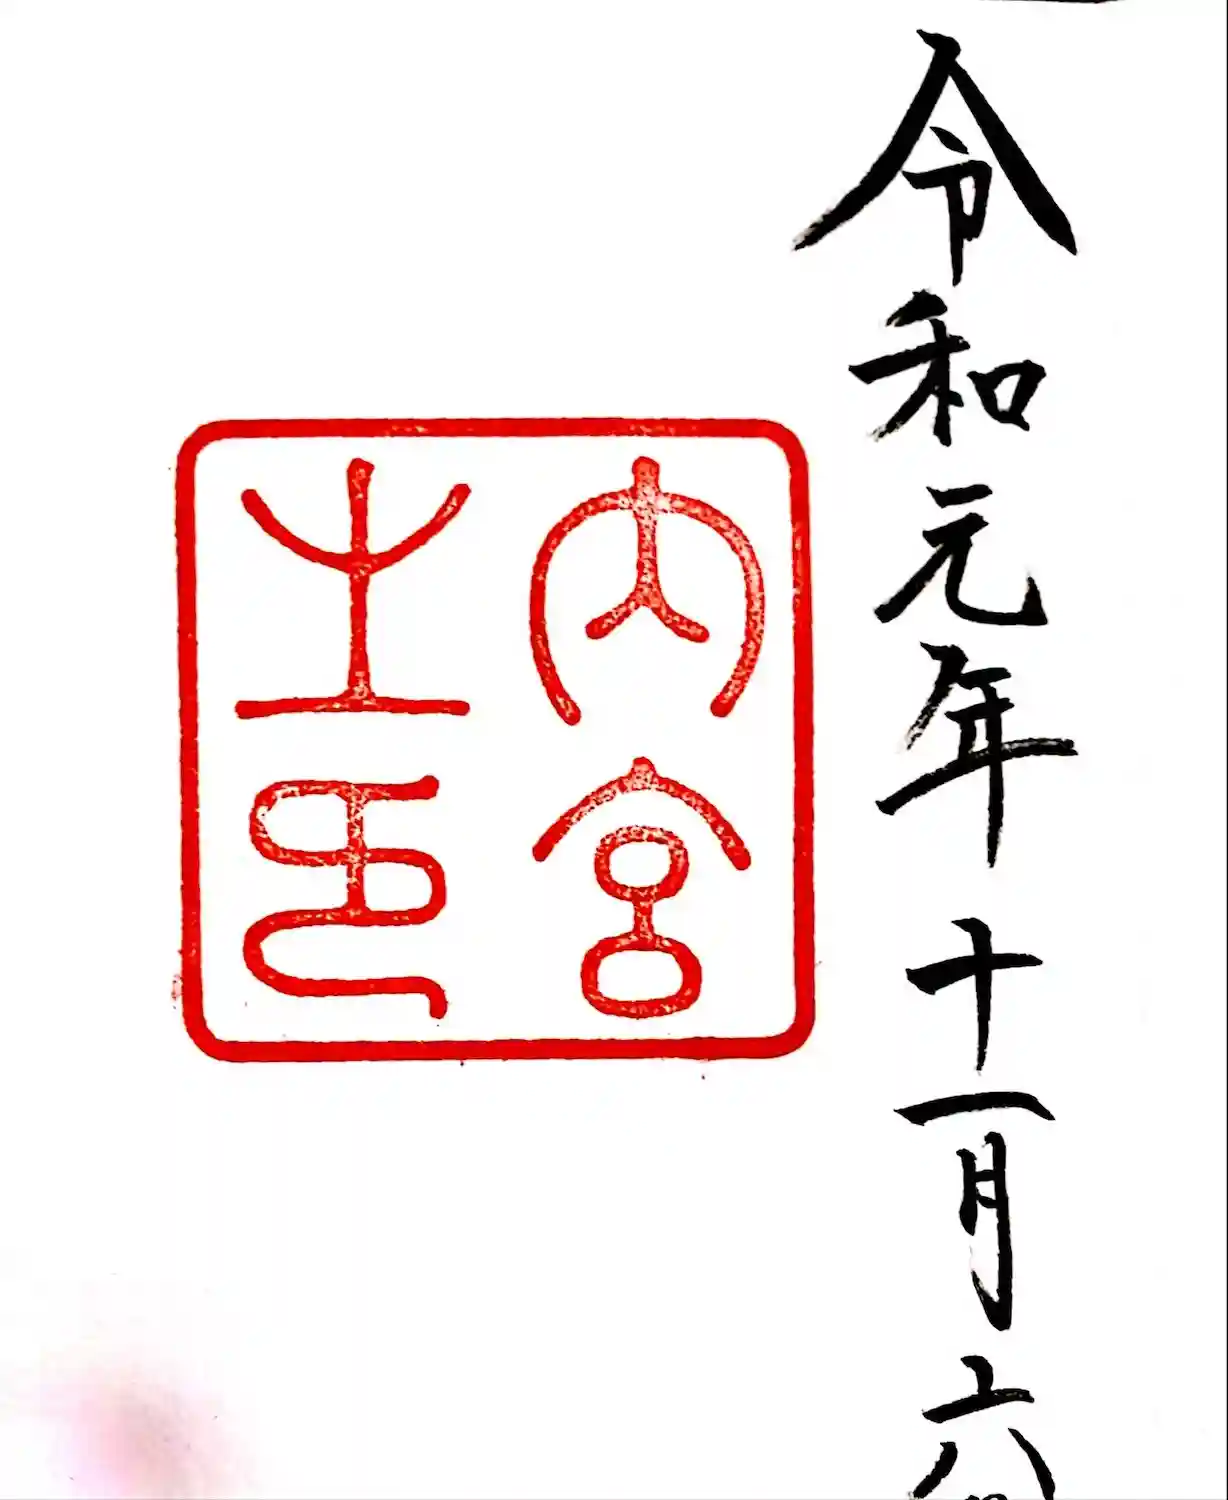 令和元年十一月六
内宮
之印